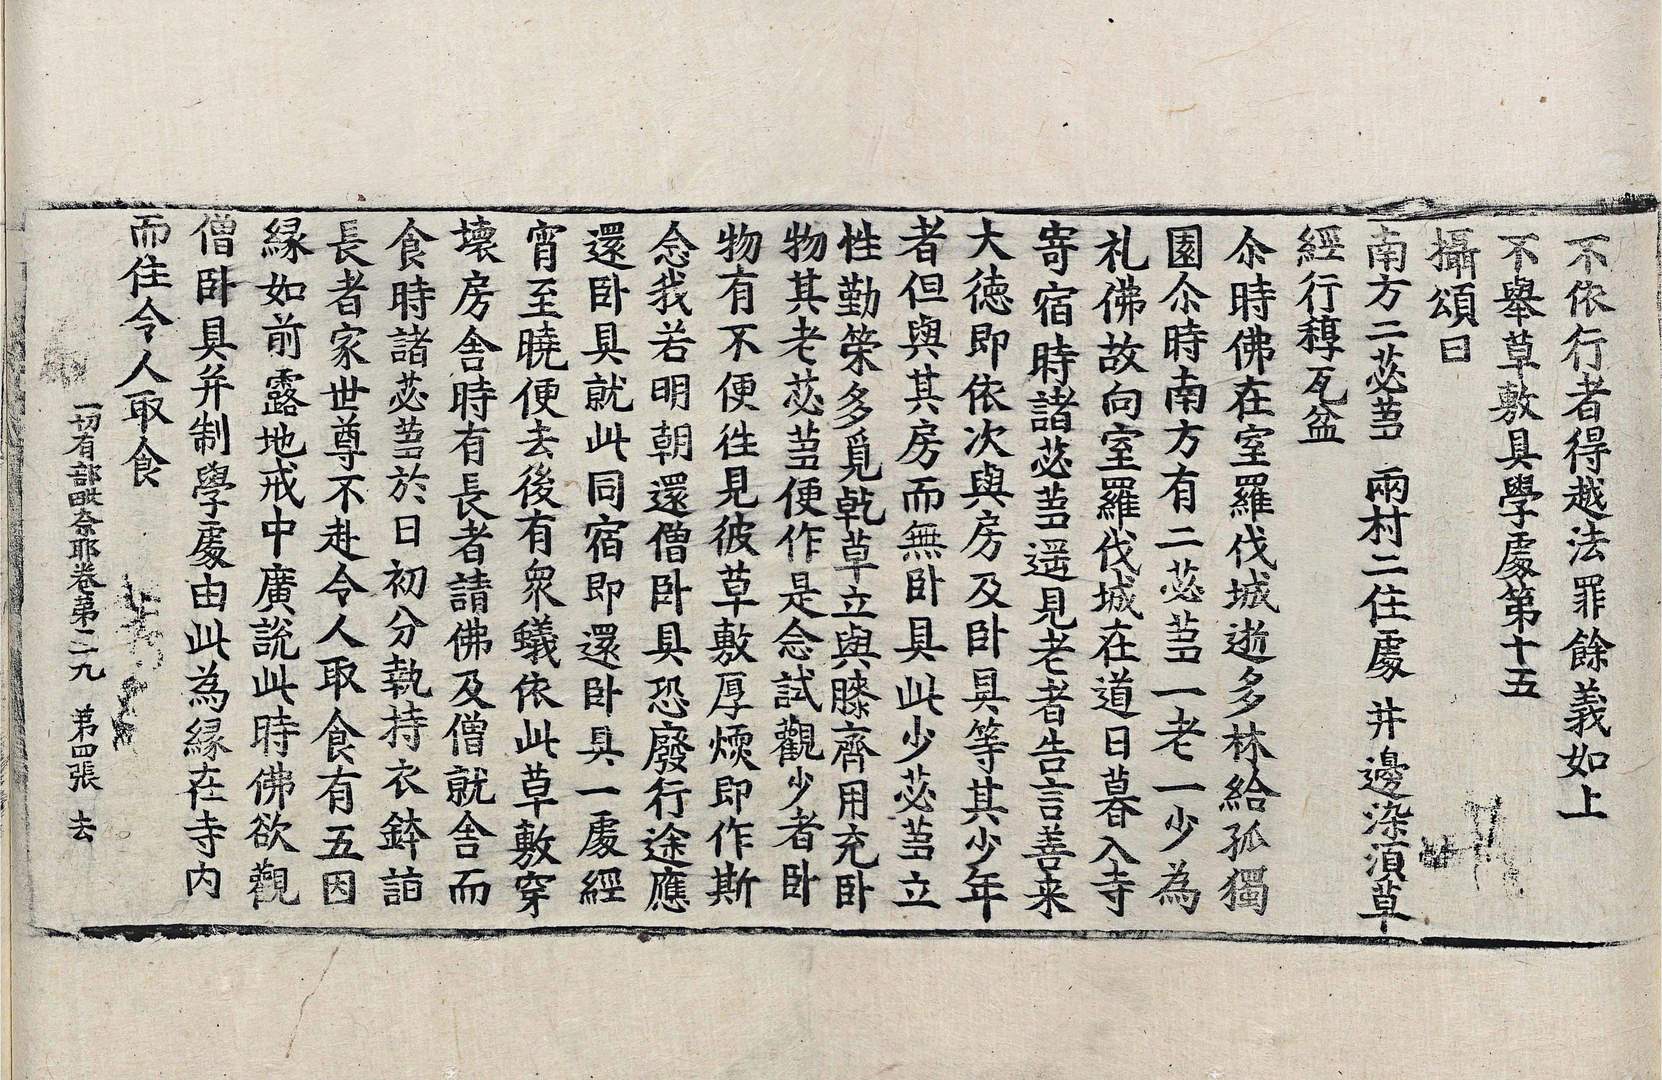 不依行者得越法罪餘義如上
不舉草敷具學處第十五
攝頌曰
南方二苾芻 兩村二住處 井邊染須草
經行稕瓦盆
尒時佛在室羅伐城逝多林給孤獨
園尒時南方有二苾芻一老一少為
礼佛故向室羅伐城在道日暮入寺
寄宿時諸苾芻遥見老者告言善来
大德即依次與房及卧具等其少年
者但與其房而無卧具此少苾芻立
性勤策多覓乹草立與膝齊用充卧
物其老苾芻便作是念試觀少者卧
物有不便往見彼草敷厚煗即作斯
念我若明朝還僧卧具恐廢行途應
還卧具就此同宿即還卧具一處經
宵至曉便去後有衆蟻依此草敷穿
壞房舍時有長者請佛及僧就舍而
食時諸苾芻於日初分執持衣鉢詣
長者家世尊不赴令人取食有五因
縁如前露地戒中廣說此時佛欲觀
僧卧具并制學處由此為縁在寺内
而住令人取食
一切有部毗奈耶卷第二九 第四張 去